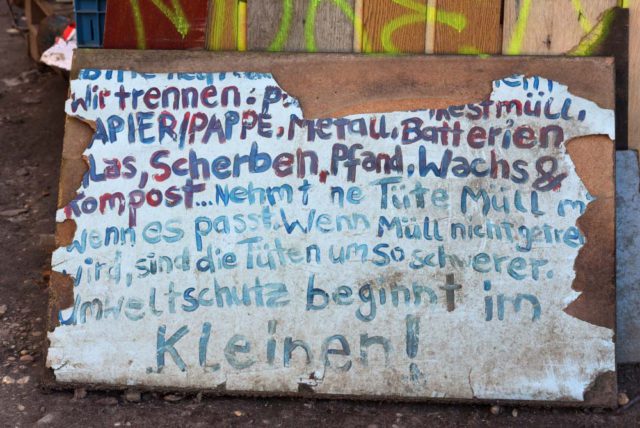 Wir trennen: P
Restmüll,
APIER/PAPPE, Metall, Batterien,
las, Scherben, Pfand, Wachs &
Kompost...Nehmt ne Tüte Müll m
wenn es passt. Wenn Müll nicht getren
wird, sind die Tüten um so schwerer.
Umweltschutz beginnt im
Kleinen!